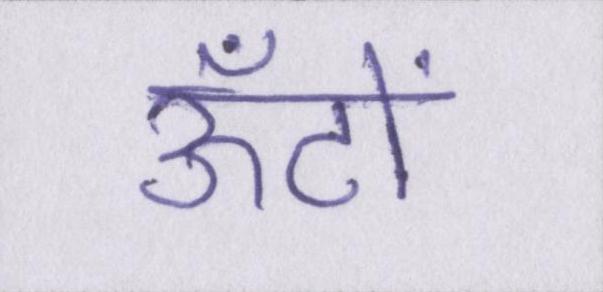 ऊँटों